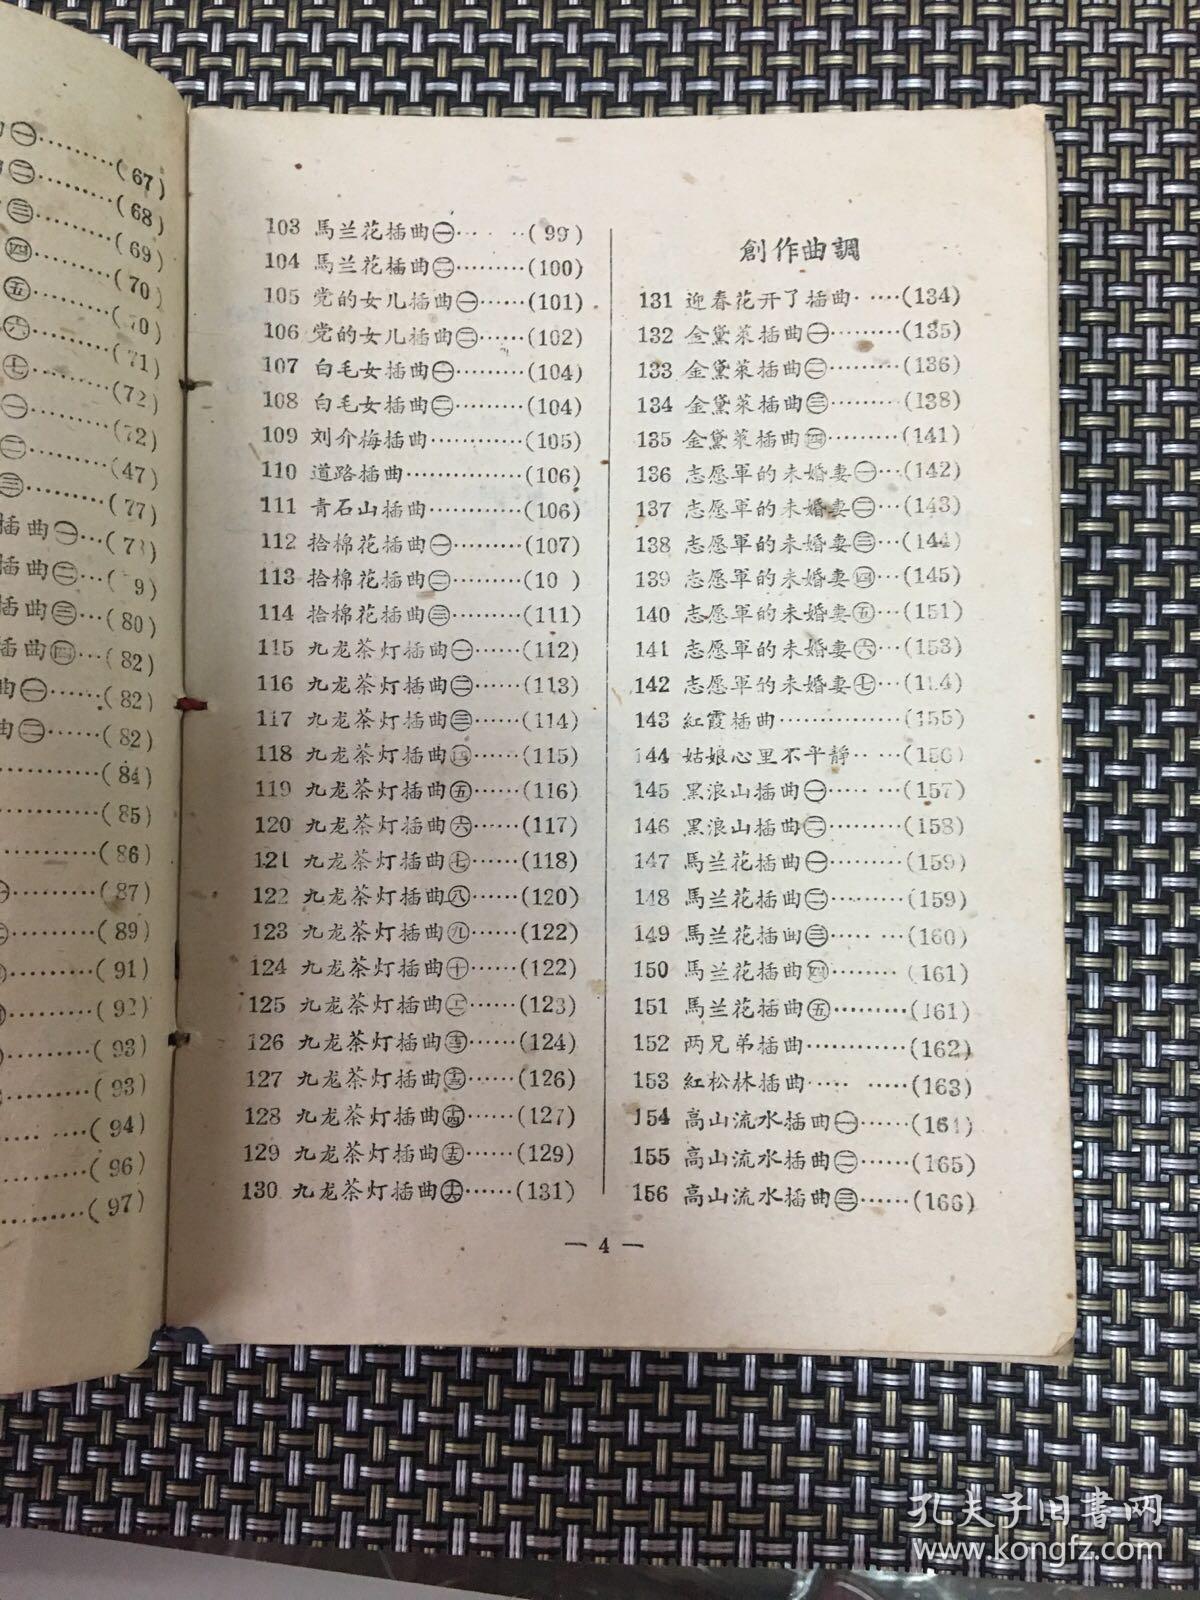 ㊀………(67)
㊁………(68)
㊂………(69)
㊃………(70)
㊄………(70)
㊅………(71)
㊆………(72)
㊀………(72)
㊁………(47)
㊂………(77)
插曲㊀…(7
插曲㊁…( 9)
插曲㊂…(80)
插曲㊃…(82)
曲㊀……(82)
曲㊁……(82)
…………(84)
…………(85)
…………(86)
………(87)
………(89)
………(91)
………(92)
………(93)
………(93)
…… …(94)
…………(96)
…………(97)
103 馬兰花插曲㊀… ··(99)
104 馬兰花插曲㊁………(100)
105 党的女儿插曲㊀……(101)
106 党的女儿插曲㊁……(102)
107 白毛女插曲㊀………(104)
108 白毛女插曲㊁………(104)
109 刘介梅插曲…………(105)
110 道路插曲……………(106)
111 青石山插曲…………(106)
112 拾棉花插曲㊀………(107)
113 拾棉花插曲㊁………(10 )
114 拾棉花插曲㊂………(111)
115 九龙茶灯插曲㊀……(112)
116 九龙茶灯插曲㊁……(113)
117 九龙茶灯插曲㊂……(114)
118 九龙茶灯插曲㊃……(115)
119 九龙茶灯插曲㊄……(116)
120 九龙茶灯插曲㊅……(117)
121 九龙茶灯插曲㊆……(118)
122 九龙茶灯插曲㊇……(120)
123 九龙茶灯插曲㊈……(122)
124 九龙茶灯插曲㊉……(122)
125 九龙茶灯插曲……(123)
126 九龙茶灯插曲……(124)
127 九龙茶灯插曲……(126)
128 九龙茶灯插曲……(127)
129 九龙茶灯插曲……(129)
130 九龙茶灯插曲……(131)
創作曲調
131 迎春花开了插曲·…·(134)
132 金黛萊插曲㊀………(135)
133 金黛萊插曲㊁………(136)
134 金黛萊插曲㊂………(138)
135 金黛萊插曲㊃………(141)
136 志愿軍的未婚妻㊀…(142)
137 志愿軍的未婚妻㊁…(143)
138 志愿軍的未婚妻㊂…(144)
139 志愿軍的未婚妻㊃…(145)
140 志愿軍的未婚妻㊄…(151)
141 志愿軍的未婚妻㊅…(153)
142 志愿軍的未婚妻㊆…(1 4)
143 紅霞插曲……………(155)
144 姑娘心里不平靜·· ·…(156)
145 黑浪山插曲㊀…·· …(157)
146 黑浪山插曲㊁………(158)
147 馬兰花插曲㊀………(159)
148 馬兰花插曲㊁………(159)
149 馬兰花插曲㊂…·· …(160)
150 馬兰花插曲㊃………(161)
151 馬兰花插曲㊄………(161)
152 两兄弟插曲…………(162)
153 紅松林插曲…·· ……(163)
154 高山流水插曲㊀……(164)
155 高山流水插曲㊁……(165)
156 高山流水插曲㊂……(166)
— 4 —
孔夫子旧書网
www.kongfz.com